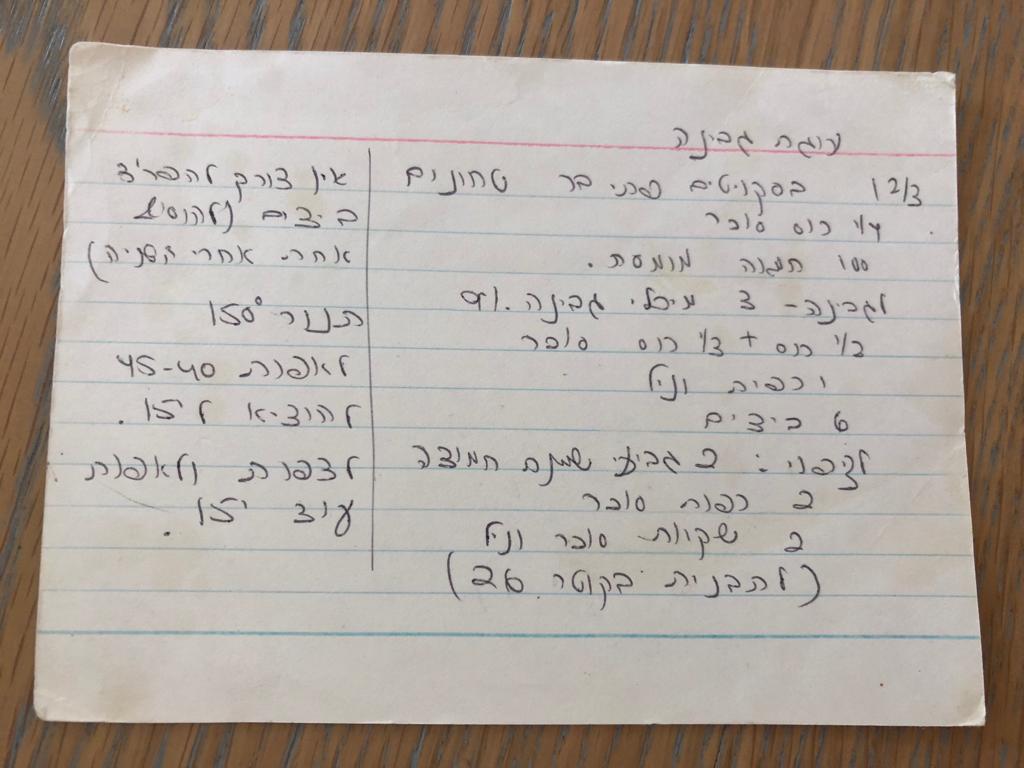 עוגת גבינה
1 2/3 בסקויטים פתי בר טחונים
1/4 כוס סוכר
100 חמאה מומסת.
לגבינה - 3 מיכלי גבינה 9%.
1/2 כוס + 1/3 כוס סוכר
1 כפית וניל
6 ביצים
לציפוי: 2 גביעי שמנת חמוצה
2 כפות סוכר
2 שקיות סוכר וניל
(לתבנית בקוטר 26)
אין צורך להפריד
ביצים (להוסיף
אחת אחרי השניה)
תנור 150°
לאפות 45-40
להוציא ל 15'.
לצפות ולאפות
עוד 15'.